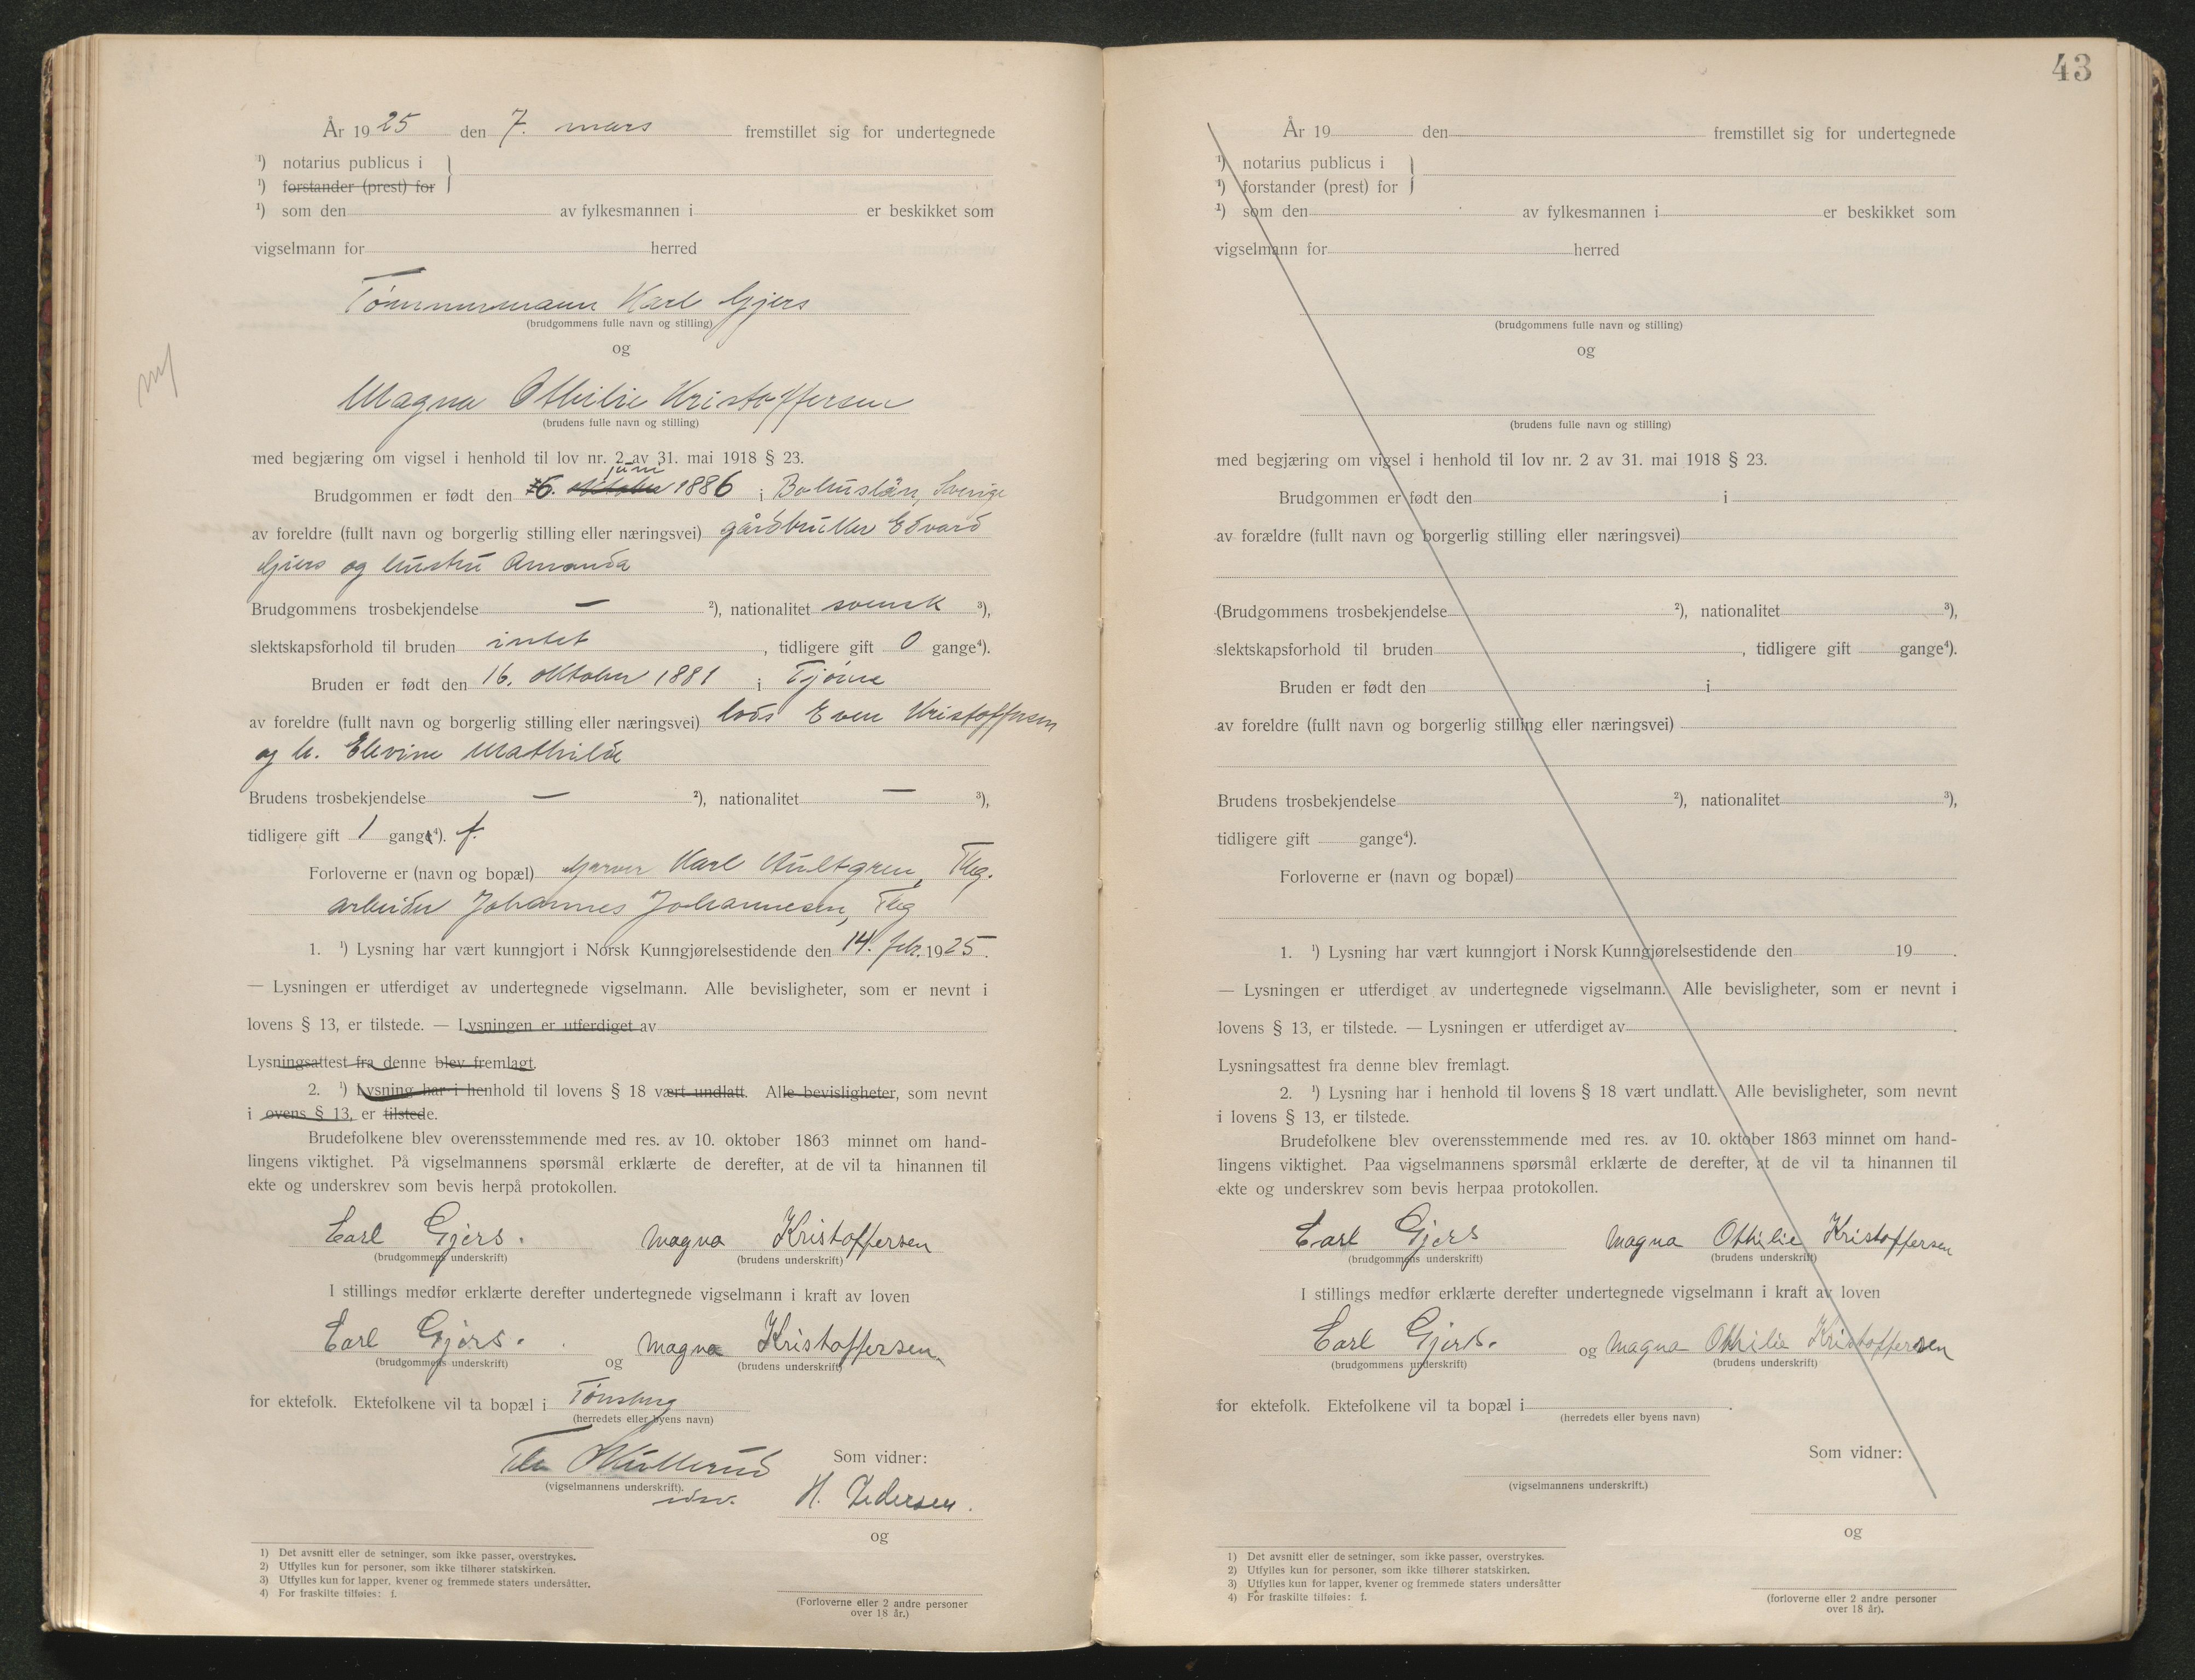 År 1925 den 7. mars fremstillet sig for undertegnede
¹) notarius publicus i
¹) forstander (prest) for
¹) som den av fylkesmannen i er beskikket som
vigselmann for herred
Tømmermann Karl Gjers
(brudgommens fulle navn og stilling)
og
Magna Othilie Kristoffersen
(brudens fulle navn og stilling)
med begjæring om vigsel i henhold til lov nr. 2 av 31. mai 1918 § 23.
juni
Brudgommen er født den 16. oktober 1886 i Bohuslän, Sverige
av foreldre (fullt navn og borgerlig stilling eller næringsvei) gårdbruker Edvard
Gjers og hustru Amanda
Brudgommens trosbekjendelse — ²), nationalitet svensk ³),
slektskapsforhold til bruden intet, tidligere gift 0 gange⁴).
Bruden er født den 16. oktober 1881 i Tjøme
av foreldre (fullt navn og borgerlig stilling eller næringsvei) lods Even Kristoffersen
og h. Elevine Mathilde
Brudens trosbekjendelse — ²), nationalitet — ³),
tidligere gift 1 gang⁴). f.
Forloverne er (navn og bopæl) garver Karl Hultgren, Tbg.
arbeider Johannes Johannesen, Tbg
1. ¹) Lysning har vært kunngjort i Norsk Kunngjørelsestidende den 14. febr. 1925.
— Lysningen er utferdiget av undertegnede vigselmann. Alle bevisligheter, som er nevnt i
lovens § 13, er tilstede. — Lysningen er utferdiget av
Lysningsattest fra denne blev fremlagt.
2. ¹) Lysning har i henhold til lovens § 18 vært undlatt. Alle bevisligheter, som nevnt
i lovens § 13, er tilstede.
Brudefolkene blev overensstemmende med res. av 10. oktober 1863 minnet om hand-
lingens viktighet. På vigselmannens spørsmål erklærte de derefter, at de vil ta hinannen til
ekte og underskrev som bevis herpå protokollen.
Carl Gjers. Magna Kristoffersen
(brudgommens underskrift) (brudens underskrift)
I stillings medfør erklærte derefter undertegnede vigselmann i kraft av loven
Carl Gjers. og Magna Kristoffersen.
(brudgommens underskrift) (brudens underskrift)
for ektefolk. Ektefolkene vil ta bopæl i Tønsberg
(herredets eller byens navn)
Som vidner:
(vigselmannens underskrift).
H. Pedersen.
og
1) Det avsnitt eller de setninger, som ikke passer, overstrykes.
2) Utfylles kun for personer, som ikke tilhører statskirken.
3) Utfylles kun for lapper, kvener og fremmede staters undersåtter.
4) For fraskilte tilføies: f.
(Forloverne eller 2 andre personer
over 18 år.)
43
År 19 den fremstillet sig for undertegnede
¹) notarius publicus i
¹) forstander (prest) for
¹) som den av fylkesmannen i er beskikket som
vigselmann for herred
(brudgommens fulle navn og stilling)
og
(brudens fulle navn og stilling)
med begjæring om vigsel i henhold til lov nr. 2 av 31. mai 1918 § 23.
Brudgommen er født den i
av forældre (fullt navn og borgerlig stilling eller næringsvei)
(Brudgommens trosbekjendelse ²), nationalitet ³),
slektskapsforhold til bruden, tidligere gift gange⁴).
Bruden er født den i
av foreldre (fullt navn og borgerlig stilling eller næringsvei)
Brudens trosbekjendelse ²), nationalitet ³),
tidligere gift gange⁴).
Forloverne er (navn og bopæl)
1. ¹) Lysning har vært kunngjort i Norsk Kunngjørelsestidende den 19 .
— Lysningen er utferdiget av undertegnede vigselmann. Alle bevisligheter, som er nevnt i
lovens § 13, er tilstede. — Lysningen er utferdiget av .
Lysningsattest fra denne blev fremlagt.
2. ¹) Lysning har i henhold til lovens § 18 vært undlatt. Alle bevisligheter, som nevnt
i lovens § 13, er tilstede.
Brudefolkene blev overensstemmende med res. av 10. oktober 1863 minnet om hand-
lingens viktighet. Paa vigselmannens spørsmål erklærte de derefter, at de vil ta hinannen til
ekte og underskrev som bevis herpaa protokollen.
Carl Gjers Magna Othilie Kristoffersen
(brudgommens underskrift) (brudens underskrift)
I stillings medfør erklærte derefter undertegnede vigselmann i kraft av loven
Carl Gjers. og Magna Othilie Kristoffersen
(brudgommens underskrift) (brudens underskrift)
for ektefolk. Ektefolkene vil ta bopæl i .
(herredets eller byens navn)
Som vidner:
(vigselmannens underskrift.)
og
1) Det avsnitt eller de setninger, som ikke passer, overstrykes.
2) Utfylles kun for personer, som ikke tilhører statskirken.
3) Utfylles kun for lapper, kvener og fremmede staters undersåtter
4) For fraskilte tilføies: f.
(forloverne eller 2 andre personer
over 18 år).